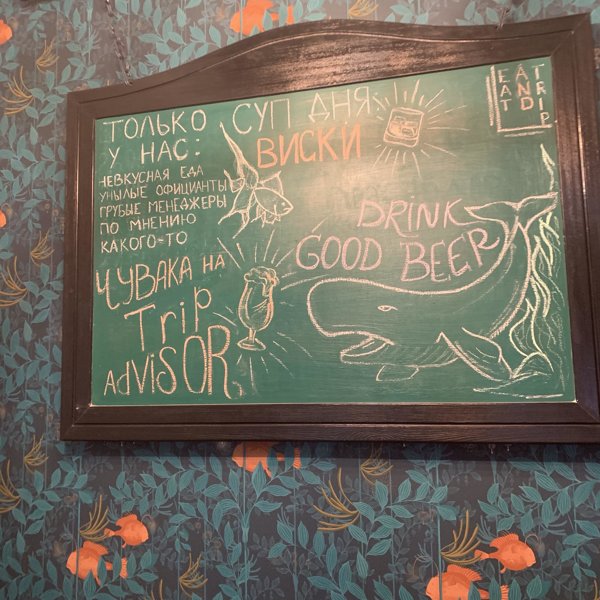 ТОЛЬКО
У НАС:
НЕВКУСНАЯ ЕДА
УНЫЛЫЕ ОФИЦИАНТЫ
ГРУБЫЕ МЕНЕДЖЕРЫ
ПО МНЕНИЮ
КАКОГО-ТО
ЧУВАКА НА
Trip
AdViSOR
СУП ДНЯ:
ВИСКИ
DRINK
GOOD BEER
EAT
AND
TRIP